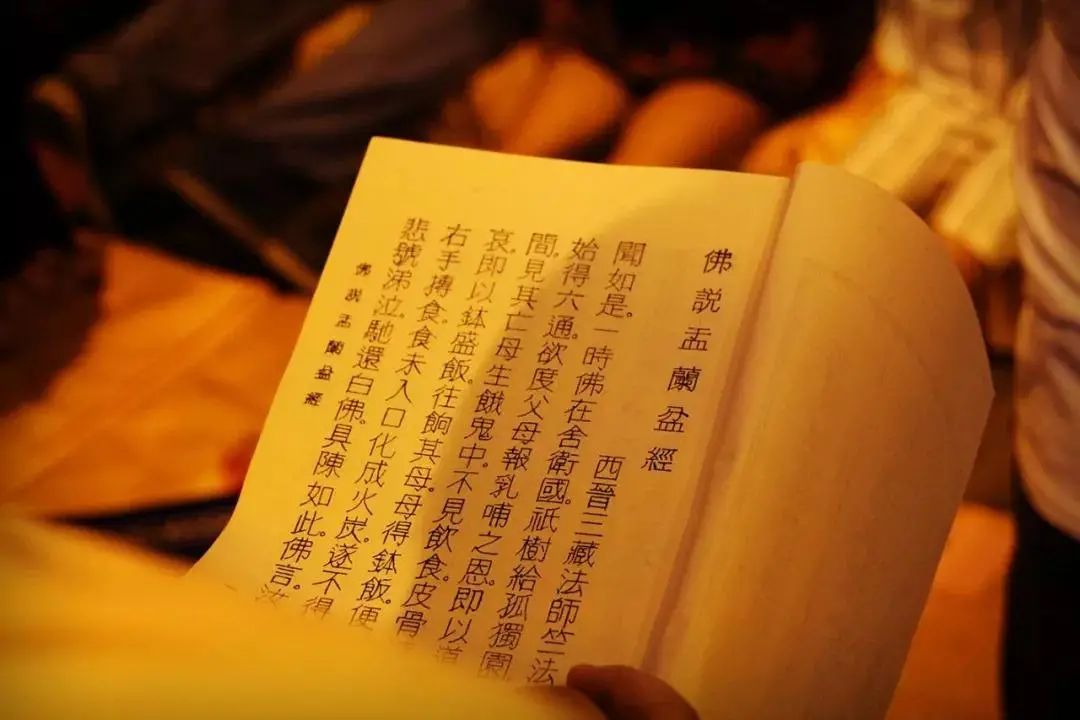 佛説盂蘭盆經
西晉三藏法師竺法
聞如是。一時佛在舍衛國。祇樹給孤獨園。
始得六通。欲度父母報乳哺之恩。即以道
間。見其亡母生餓鬼中。不見飲食。皮骨
哀。即以鉢盛飯。往餉其母。母得鉢飯。便
右手摶食。食未入口化成火炭。遂不得
悲號涕泣。馳還白佛。具陳如此。佛言。汝
佛説盂蘭盆經